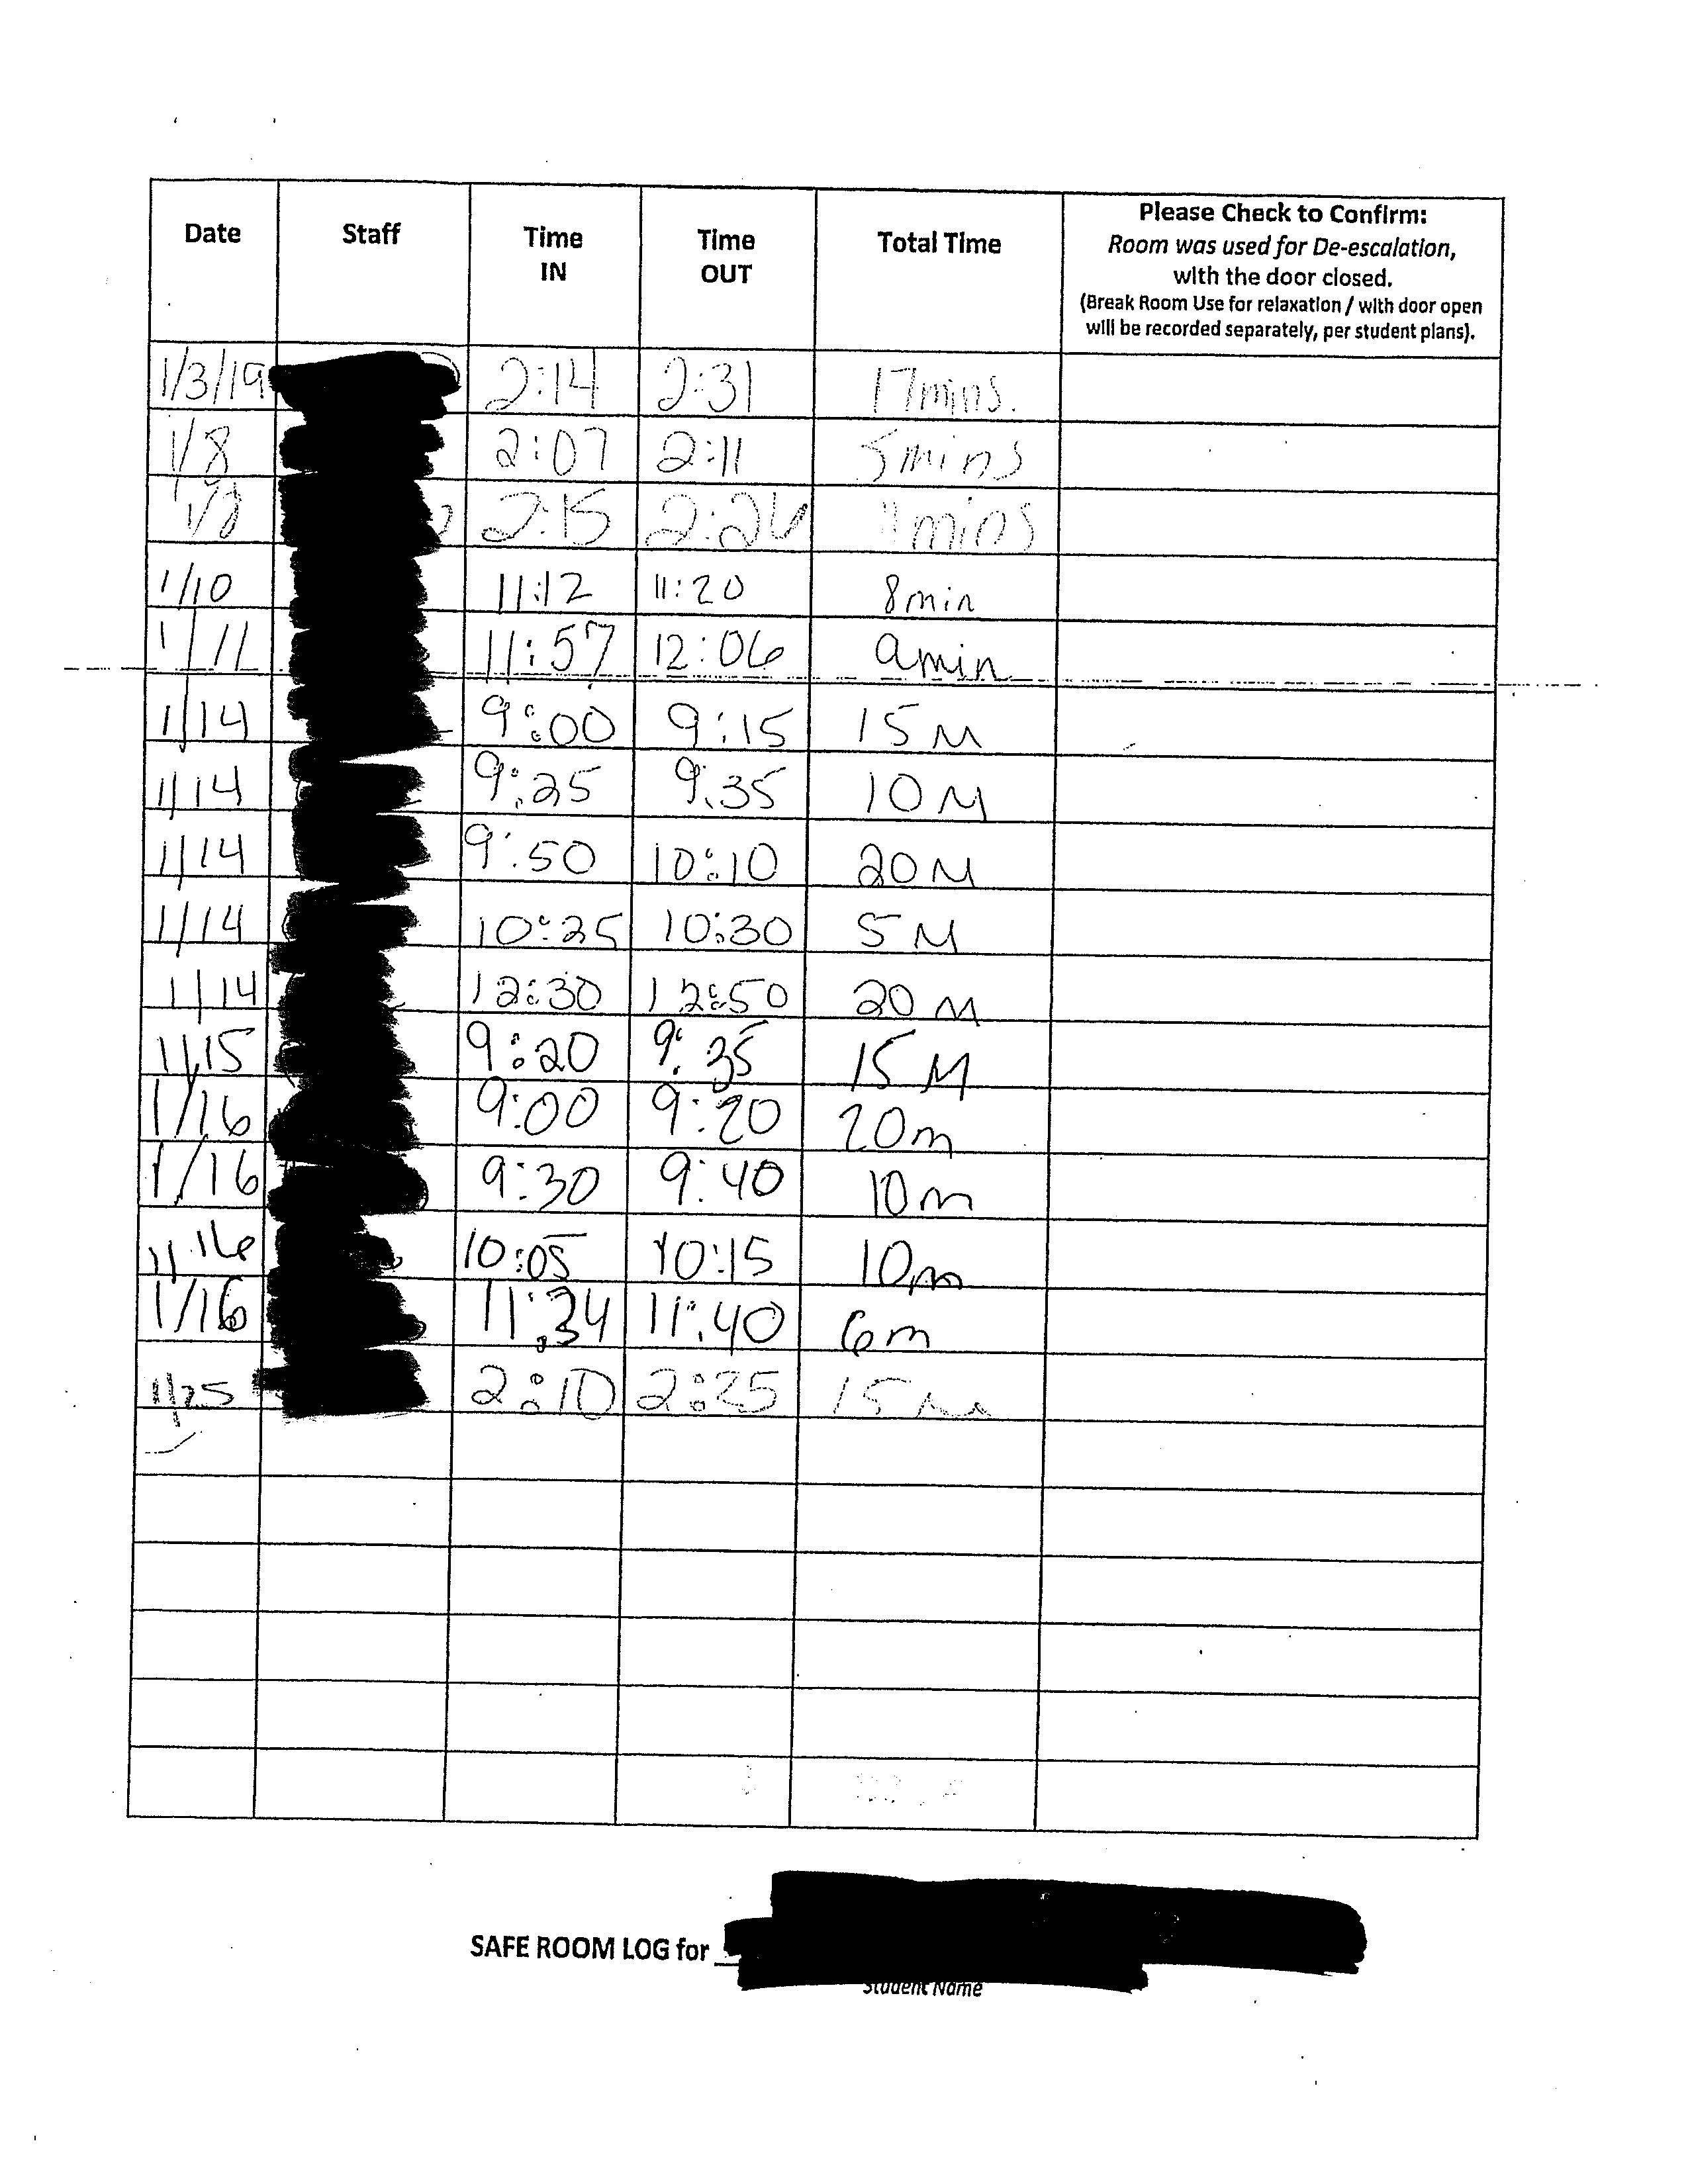 Date Staff Time IN Time OUT Total Time Please Check to Confirm:
Room was used for De-escalation,
with the door closed.
(Break Room Use for relaxation / with door open
will be recorded separately, per student plans).
1/3/19 2:14 2:31 17mins.
1/8 2:07 2:11 5mins
2:15 2:26 11mins
1/10 11:12 11:20 8min
1/11 11:57 12:06 9min
1/14 9:00 9:15 15 M
1/14 9:25 9:35 10 M
1/14 9:50 10:10 20 M
1/14 10:25 10:30 5 M
1/14 12:30 12:50 20 M
1/15 9:20 9:35 15 M
1/16 9:00 9:20 20m
1/16 9:30 9:40 10m
1/16 10:05 10:15 10m
1/16 11:34 11:40 6m
1/25 2:10 2:25 15 M
SAFE ROOM LOG for
Student Name